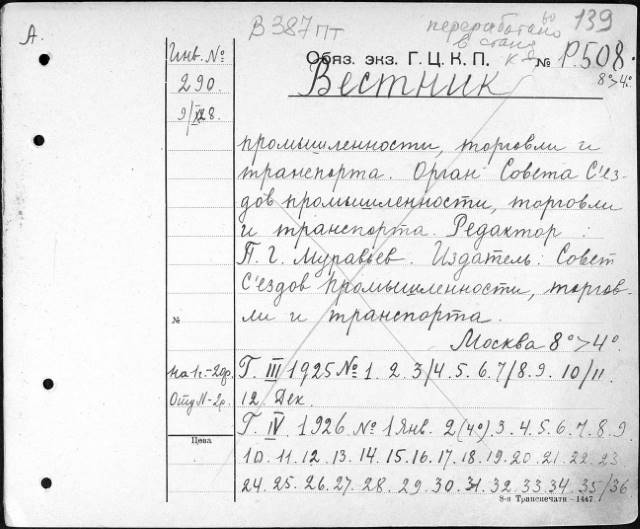 А.
В 387 пт
переработано
139
Инв. №
Обяз. экз. Г. Ц. К. П.
№ Р.508.
290.
Вестник
8°>4°
промышленности, торговли и
транспорта. Орган Совета Съез-
дов промышленности, торговли
и транспорта. Редактор:
П. Г. Муравьев. Издатель: Совет
С'ездов промышленности, торгов-
№
ли и транспорта.
Москва 8°>4°
Г. III 1925 № 1 2. 3/4. 5. 6. 7/8. 9. 10/11.
12. Дек.
Г. IV. 1926 № 1 Янв. 2 (4°). 3. 4. 5. 6. 7. 8. 9
Цена
10. 11. 12. 13. 14. 15. 16. 17. 18. 19. 20. 21. 22. 23
24. 25. 26. 27. 28. 29. 30. 31. 32. 33. 34. 35/36
8-я Транспечати - 1447.